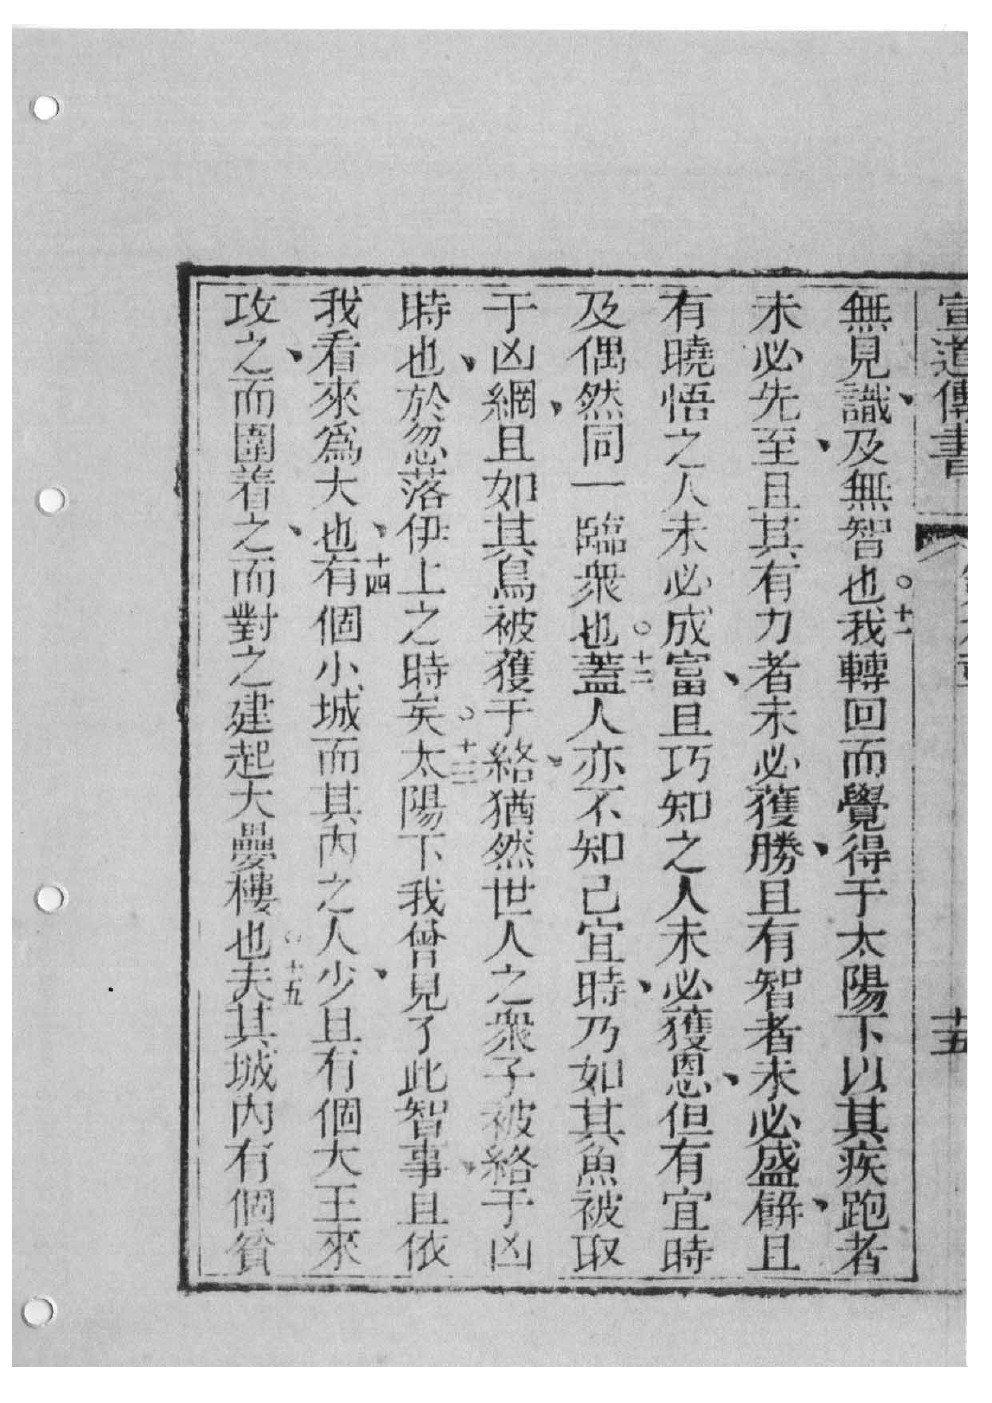 宣道傳書 十五
無見識、及無智也。十一我轉回而覺得于太陽下以其疾跑者
未必先至、且其有力者未必獲勝、且有智者未必盛餅、且
有曉悟之人未必成富、且巧知之人未必獲恩、但有宜時
及偶然同一臨衆也。十二蓋人亦不知己宜時、乃如其魚被取
于凶網、且如其鳥被獲于絡、猶然世人之衆子被絡于凶
時也、於忽落伊上之時矣。十三太陽下我曾見了此智事、且依
我看來爲大也、十四有個小城而其內之人少、且有個大王來
攻之、而圍着之、而對之建起大壘樓也。十五夫其城內有個貧